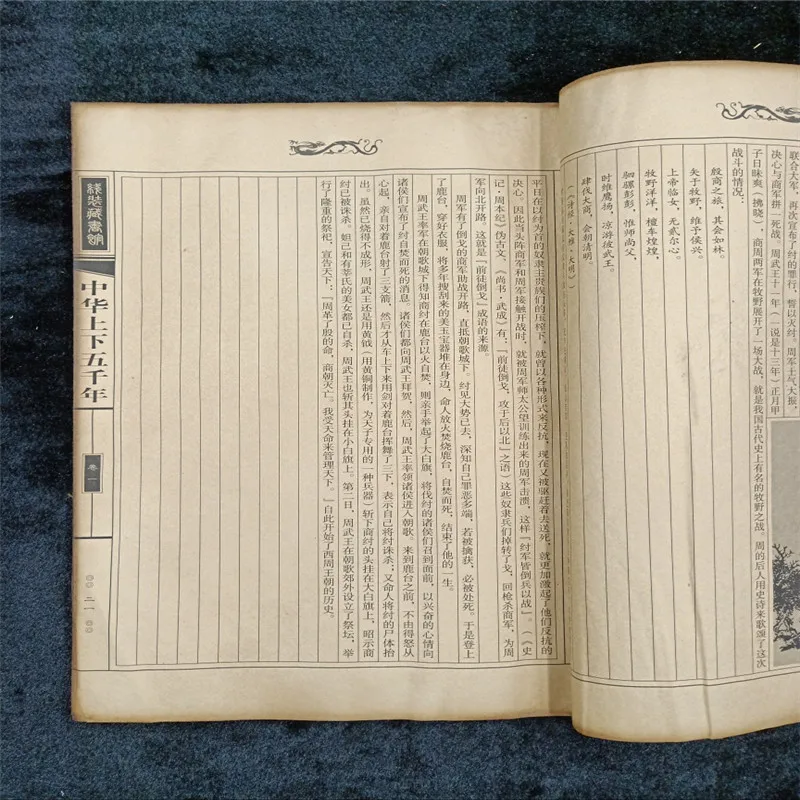 联合大军，再次宣布了纣的罪行，誓以灭纣。周军士气大振，
决心与商军拼一死战。周武王十一年（一说是十三年）正月甲
子日昧爽（拂晓），商周两军在牧野展开了一场大战，就是我国古代史上有名的牧野之战。周的后人用史诗来歌颂了这次
战斗的情况：
殷商之旅，其会如林。
矢于牧野，维予侯兴。
上帝临女，无贰尔心。
牧野洋洋，檀车煌煌，
驷騵彭彭，惟师尚父，
时维鹰扬，凉涉彼武王，
肆伐大商，会朝清明。
（《诗经·大雅·大明》）
平日在以纣为首的奴隶主贵族们的压榨下，就曾以各种形式来反抗，现在又被驱赶着去送死，就更加激起了他们反抗的
决心。因此当头阵商军和周军接触开战时，就被周军师太公望训练出来的周军击溃，这样『纣军皆倒兵以战』。（《史
记·周本纪》伪古文，《尚书·武成》有，『前徒倒戈，攻于后以北』之语）这些奴隶兵们掉转了戈，回枪杀商军，为周
军向北开路，这就是『前徒倒戈』成语的来源。
周军有了倒戈的商军助战开路，直抵朝歌城下。纣见大势已去，深知自己罪恶多端，若被擒获，必被处死。于是登上
了鹿台，穿好衣服，将多年搜刮来的美玉宝器堆在身边，命人放火焚烧鹿台，自焚而死，结束了他的一生。
周武王率军在朝歌城下得知商纣在鹿台以火自焚，则亲手举起了大白旗，将伐纣的诸侯们召到面前，以兴奋的心情向
诸侯们宣布了纣自焚而死的消息。诸侯们都向周武王拜贺，然后，周武王率领诸侯进入朝歌。来到鹿台之前，不由得怒从
心起，亲自对着鹿台射了三支箭，然后才从车上下来用剑对着鹿台挥舞了三下，表示自己将纣诛杀；又命人将纣的尸体抬
出。虽然已烧得不成形，周武王还是用黄钺（用黄铜制作，为天子专用的一种兵器）斩下商纣的头挂在大白旗上，昭示商
纣已被诛杀。妲己和有莘氏的美女都已自杀，周武王也斩其头挂在小白旗上。第二日，周武王在朝歌郊外设立了祭坛，举
行了隆重的祭祀，宣告天下：『周革了殷的命，商朝灭亡。我受天命来管理天下。』自此开始了西周王朝的历史。
线装藏书馆
中华上下五千年
卷一
二一